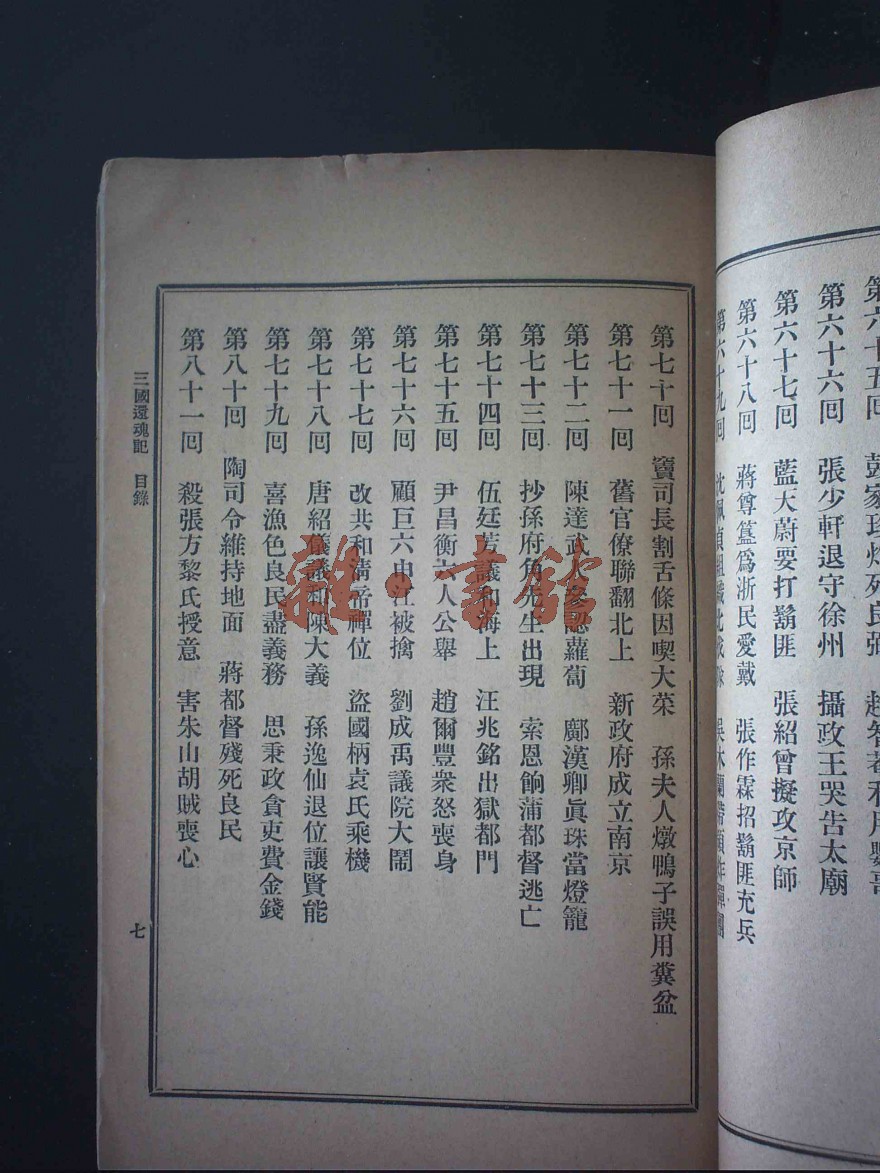 張少軒退守徐州　攝政王哭告太廟
第六十六回
第六十七回　藍天蔚要打鬍匪　張紹曾擬攻京師
第六十八回　蔣尊簋爲浙民愛戴　張作霖招鬍匪充兵
第六十九回
第七十回　竇司長割舌條因喫大菜　孫夫人燉鴨子誤用糞盆
第七十一回　舊官僚聯翻北上　新政府成立南京
第七十二回　陳達武人參認蘿蔔　鄺漢卿眞珠當燈籠
第七十三回　抄孫府角先生出現　索恩餉蒲都督逃亡
第七十四回　伍廷芳議和海上　汪兆銘出獄都門
第七十五回　尹昌衡六人公舉　趙爾豐衆怒喪身
第七十六回　顧巨六申江被擒　劉成禹議院大鬧
第七十七回　改共和淸帝禪位　盜國柄袁氏乘機
第七十八回　唐紹儀議和陳大義　孫逸仙退位讓賢能
第七十九回　喜漁色良民盡義務　思秉政貪吏費金錢
第八十回　陶司令維持地面　蔣都督殘死良民
第八十一回　殺張方黎氏授意　害朱山胡賊喪心
三國還魂記　目錄
七
雜·書館